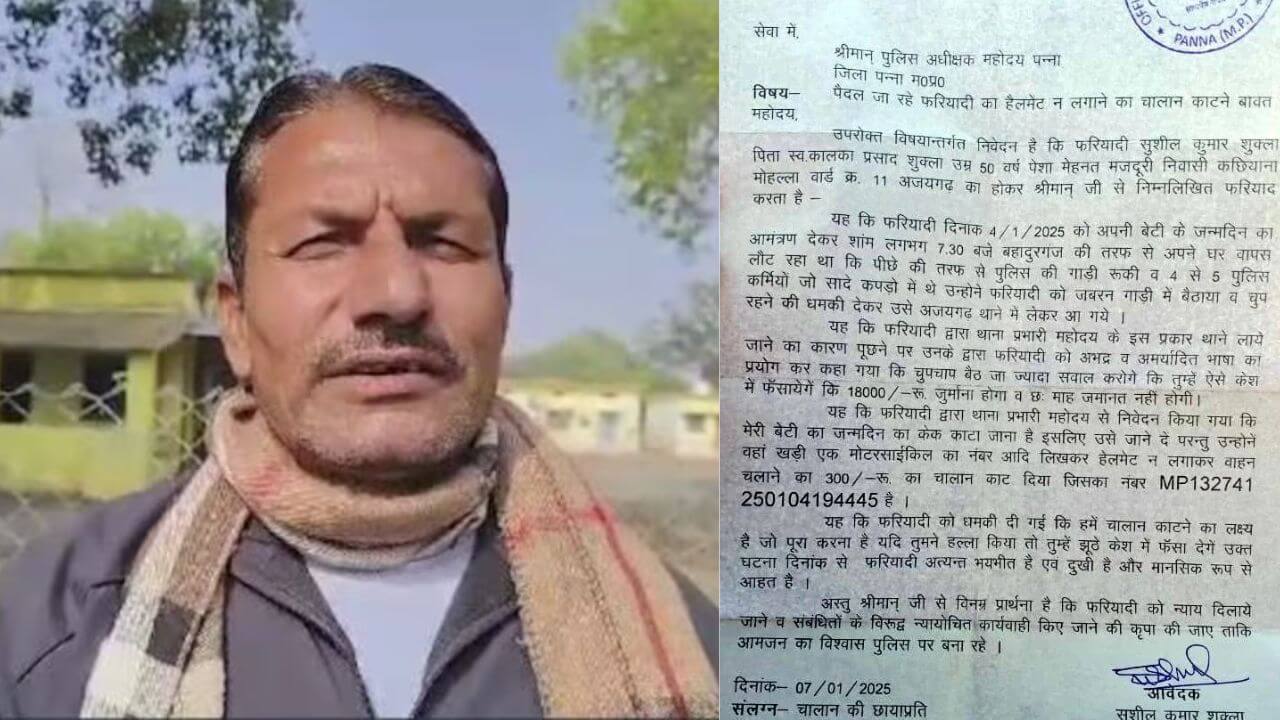 PANNA (M.P.)
सेवा में,
श्रीमान् पुलिस अधीक्षक महोदय पन्ना
जिला पन्ना म०प्र०
विषय– पैदल जा रहे फरियादी का हैलमेट न लगाने का चालान काटने बावत
महोदय,
उपरोक्त विषयान्तर्गत निवेदन है कि फरियादी सुशील कुमार शुक्ला
पिता स्व.कालका प्रसाद शुक्ला उम्र 50 वर्ष पेशा मेहनत मजदूरी निवासी कछियाना
मोहल्ला वार्ड क्र. 11 अजयगढ़ का होकर श्रीमान् जी से निम्नलिखित फरियाद
करता है –
यह कि फरियादी दिनांक 4/1/2025 को अपनी बेटी के जन्मदिन का
आमंत्रण देकर शांम लगभग 7.30 बजे बहादुरगंज की तरफ से अपने घर वापस
लौट रहा था कि पीछे की तरफ से पुलिस की गाड़ी रूकी व 4 से 5 पुलिस
कर्मियों जो सादे कपड़ो में थे उन्होने फरियादी को जबरन गाड़ी में बैठाया व चुप
रहने की धमकी देकर उसे अजयगढ़ थाने में लेकर आ गये ।
यह कि फरियादी द्वारा थाना प्रभारी महोदय के इस प्रकार थाने लाये
जाने का कारण पूछने पर उनके द्वारा फरियादी को अभद्र व अमर्यादित भाषा का
प्रयोग कर कहा गया कि चुपचाप बैठ जा ज्यादा सवाल करोगे कि तुम्हें ऐसे केश
में फँसायेगें कि 18000/–रू. जुर्माना होगा व छः माह जमानत नही होगी।
यह कि फरियादी द्वारा थाना प्रभारी महोदय से निवेदन किया गया कि
मेरी बेटी का जन्मदिन का केक काटा जाना है इसलिए उसे जाने दे परन्तु उन्होने
वहां खड़ी एक मोटरसाईकिल का नंबर आदि लिखकर हेलमेट न लगाकर वाहन
चलाने का 300/–रू. का चालान काट दिया जिसका नंबर MP132741
250104194445 है ।
यह कि फरियादी को धमकी दी गई कि हमें चालान काटने का लक्ष्य
है जो पूरा करना है यदि तुमने हल्ला किया तो तुम्हें झूठे केश में फँसा देगें उक्त
घटना दिनांक से फरियादी अत्यन्त भयभीत है एवं दुखी है और मानसिक रूप से
आहत है ।
अस्तु श्रीमान् जी से विनम्र प्रार्थना है कि फरियादी को न्याय दिलाये
जाने व संबंधितों के विरूद्व न्यायोचित कार्यवाही किए जाने की कृपा की जाए ताकि
आमजन का विश्वास पुलिस पर बना रहे ।
दिनांक– 07/01/2025
आवेदक
संलग्न– चालान की छायाप्रति
सुशील कुमार शुक्ला